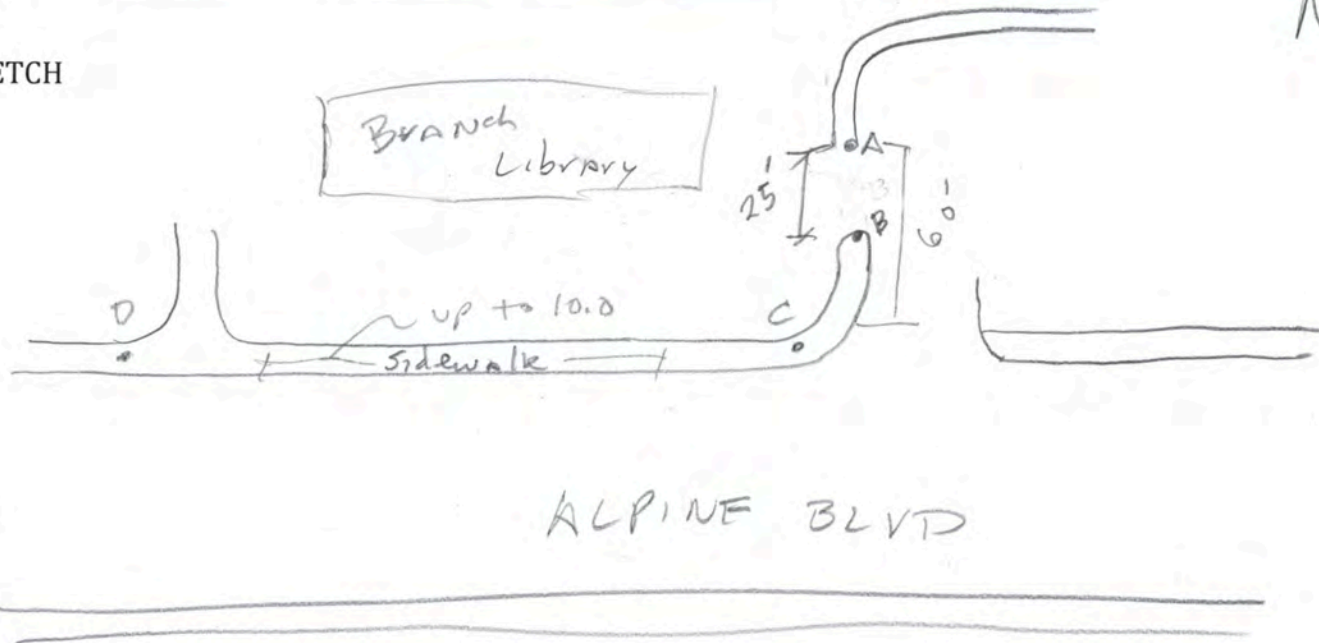 ETCH
Branch
Library
A
25'
B
60'
D
up to 10.0
C
Sidewalk
ALPINE BLVD